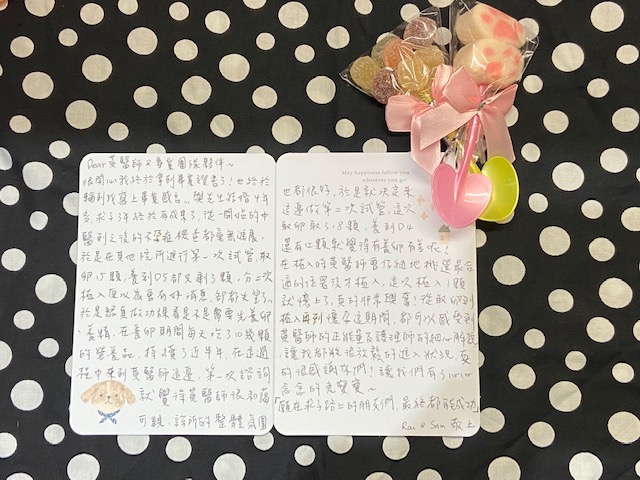 Dear 黃醫師&專業團隊夥伴~
很開心我終於拿到畢業證書了!也終於
輪到我寫上畢業感言...與先生結婚十年
多,求子3年終於有成果了,從一開始的中
醫到之後的不孕症檢查都毫無進展,
於是在其他院所進行第一次試管,取
卵15顆,養到D5卻只剩3顆,分二次
植入原以為會有好消息,卻都失望了。
於是認真做功課看是不是需要先養卵
、養精,在養卵期間每天吃了10幾顆
的營養品,持續了近半年,在這過
程中來到黃醫師這邊,第一次諮詢
就覺得黃醫師很和藹
可親,診所的整體氛圍
May happiness follow you
wherever you go!
也都很好,於是就決定來
這邊做第二次試管,這次
取卵取318顆,養到D4
還有12顆就覺得有養卵有差啦~
在植入時黃醫師會仔細地挑選最合
適的位置後才植入,這次植入1顆
就懷上了,真的非常興奮!從取卵到
植入再到懷孕這期間,都可以感受到
黃醫師的正能量及護理師的細心解說
讓我都能很放鬆的進入狀況,真
的很感謝你們!讓我們有了
念念的兒寶寶~
「願在求子路上的朋友們,最終都能成功」
Rou & Sam 敬上